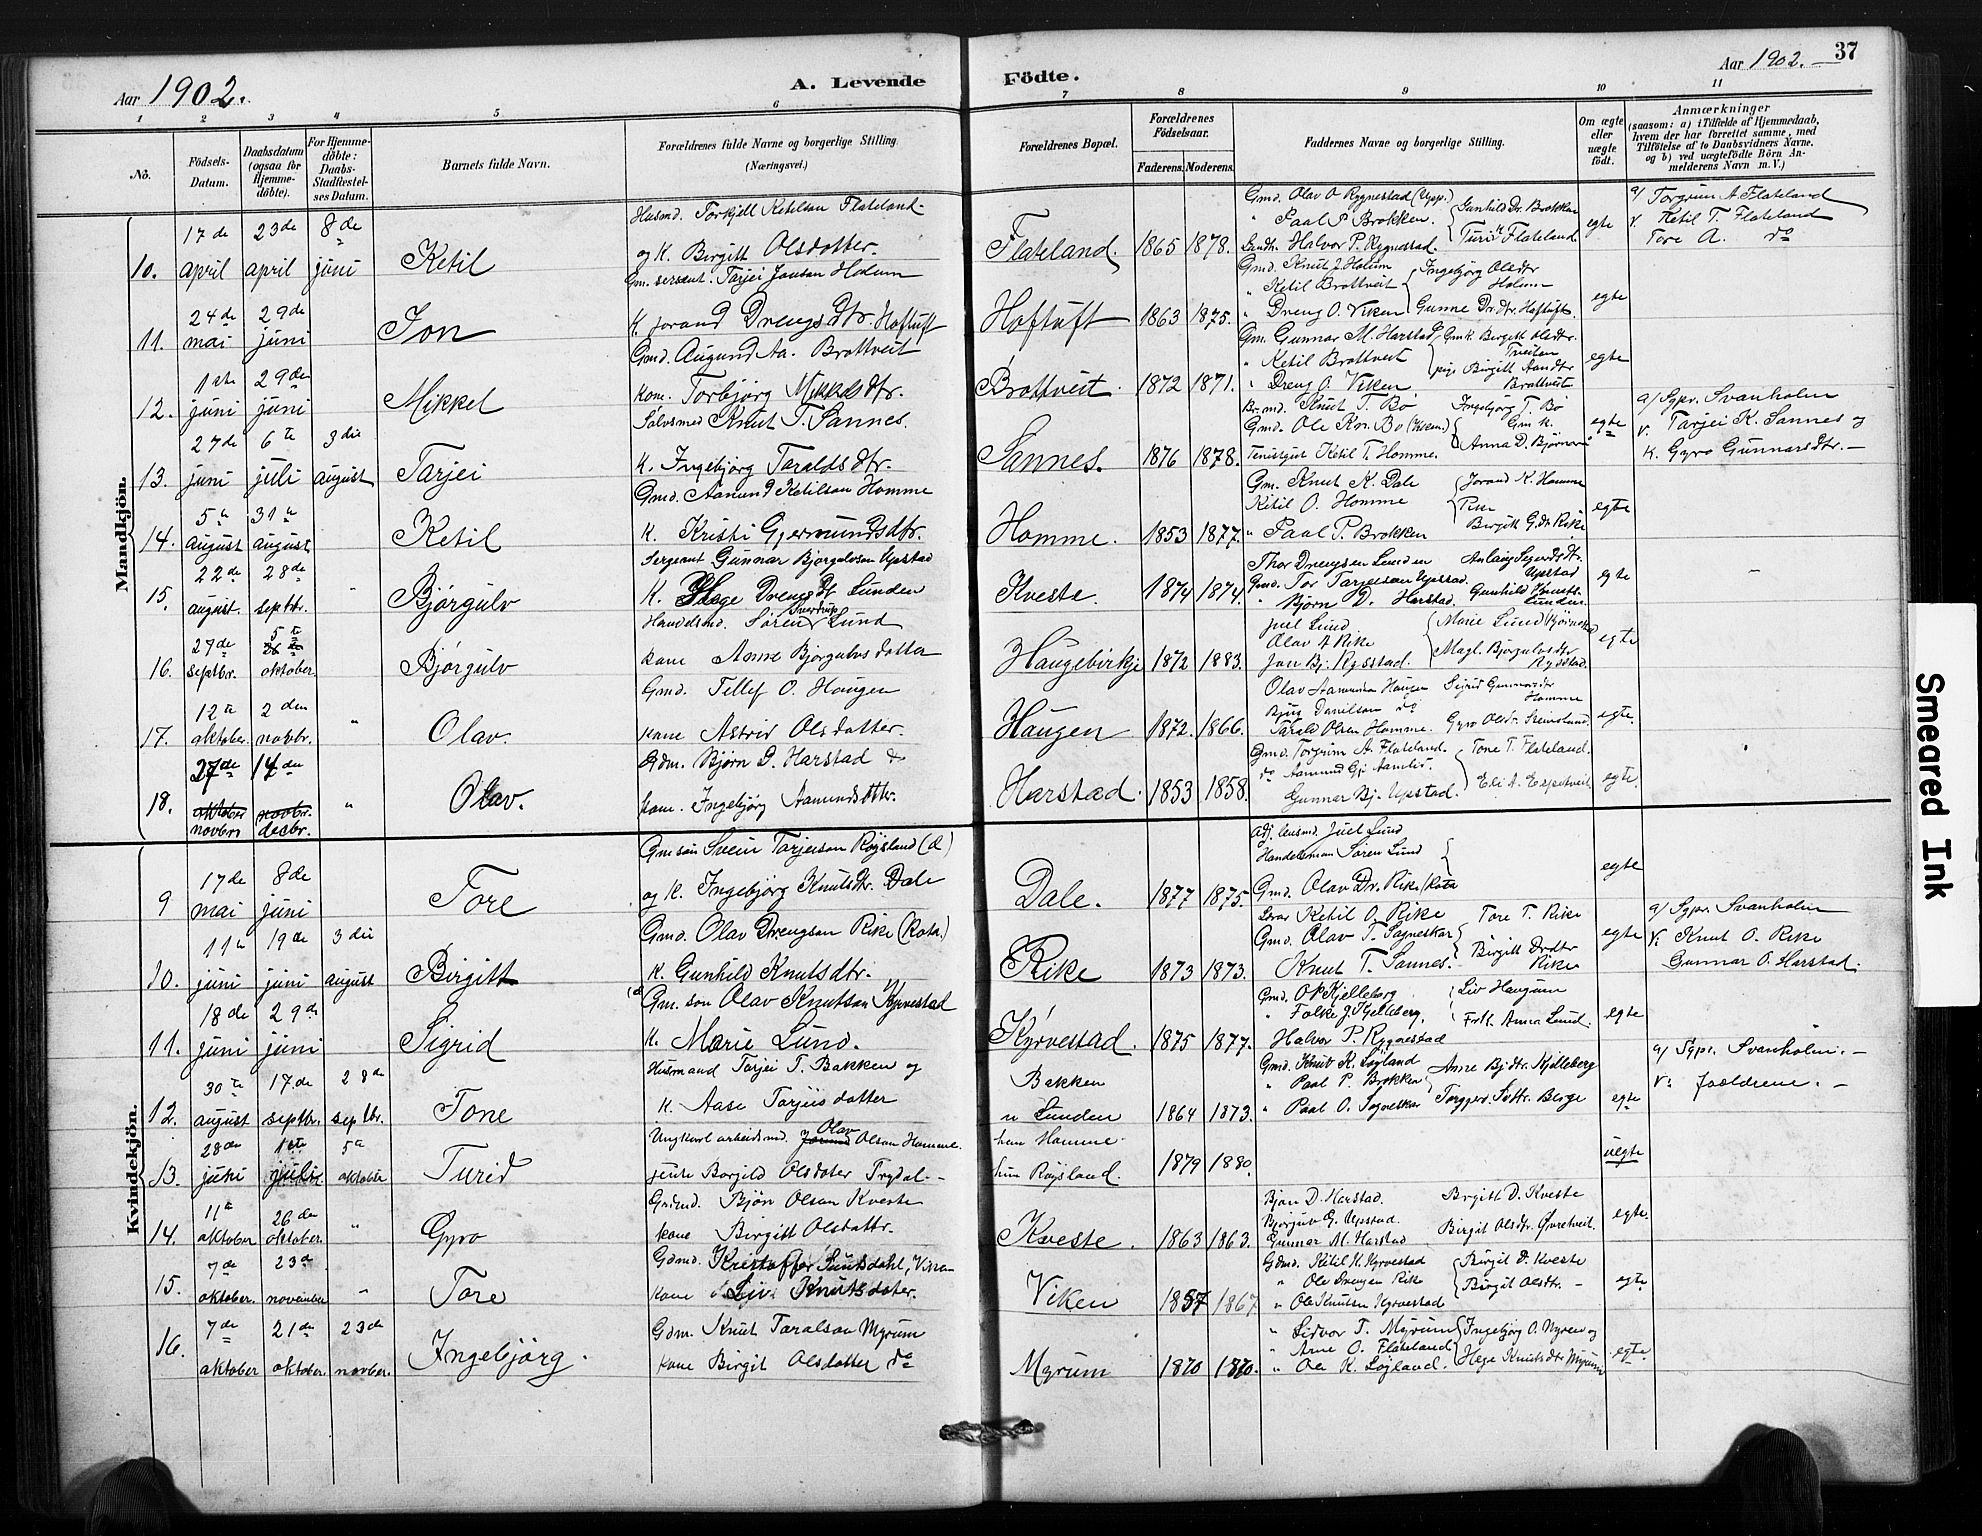 Aar 1902.
A. Levende Födte.
Aar 1902.
37
1 2 3 4 5 6 7 8 9 10 11
No.
Födsels-Datum.
Daabsdatum (ogsaa for Hjemme-döbte).
For Hjemme-döbte: Daabs-Stadfæstel-ses Datum.
Barnets fulde Navn.
Forældrenes fulde Navne og borgerlige Stilling. (Næringsvei.)
Forældrenes Bopæl.
Forældrenes Födselsaar.
Faderens. Moderens.
Faddernes Navne og borgerlige Stilling.
Om ægte eller uægte födt.
Anmærkninger (saasom: a) i Tilfælde af Hjemmedaab, hvem der har forrettet samme, med Tilföielse af to Daabsvidners Navne. og b) ved uægtefödte Börn An-melderens Navn m. V.)
Mandkjön.
10. 17de april 23de april 8de juni Ketil Husmd. Torkjell Ketilson Flateland og K. Birgitt Olsdotter. Flateland. 1865 1878. Gmd. Olav O Rygnestad (Upp.) " Paal P. Brokken. Gunhild Dr. Brokken Landh. Halvor P. Rygnestad. Turi Flateland egte a/ Torgrim A. Flateland v. Ketil T. Flateland Tore A. do
11. 24de mai 29de juni Jon Gm. sersent. Tarjei Jonson Holum K. Jorand Drengsdtr. Hoftuft Hoftuft 1863 1875. Gmd. Knut J. Holum " Ketil Brottveit Ingebjørg Olsdtr Holum " Dreng O. Viken Gunne Dr.dtr. Hoftuft. egte
12. 1ste juni 29de juni Mikkel Gmd. Augund Aa. Brottveit kone. Torbjørg Mikkelsdtr. Brottveit. 1872 1871. Gm. Gunnar M. Harstad Gmk. Birgitt Olsdtr. " Ketil Brottveit pige Birgitt Aandtr Brottveit " Dreng O. Viken egte
13. 27de juni 6te juli 3die august Tarjei Sølvsmed Knut T. Sannes. K. Ingebjørg Taraldsdtr. Sannes. 1876 1878. Br.md. Knut T. Bø Ingebjørg T. Bø Gmd. Ole Kn. Bø (Viken) Gm k. Ketil T. Homme. Anna D. Bjørnerå egte a/ Sgpr. Svanholm v. Tarjei K. Sannes og K. Gyro Gunnarsdtr. —
14. 5te august 31te august Ketil Gmd. Aanund Ketilson Homme K. Kristi Gjermundsdtr. Homme. 1853 1877. Gm. Knut K. Dale Jorand K. Homme Ketil O. Homme Birgitt G.dr. Rike " Paal P. Brokken egte
15. 22de august. 28de septbr. " Bjørgulv Sergeant Gunnar Bjørgulvson Upstad K. Hege Drengsdtr. Lunden Kveste. 1874 1874. Thor Drengsen Lunden Gmd. Tor Tarjeison Upstad. Upstad Bjørn D. Harstad. Gunhild Knuts. Lunden. egte
16. 27de septbr. 5te oktober. Bjørgulv Handelsmd. Søren Sverdrup Lund kone Anne Bjørgulvsdatter Haugebirkje 1872 1883. Juel Lund Marie Lund (Bjørnestad Olav A Rike Jon Bj. Rysstad. Magl. Bjørgulvsdtr Rysstad. egte
17. 12te oktober. 2den novbr. " Olav. Gmd. Tellef O. Haugen kone Astrid Olsdatter. Haugen 1872. 1866. Olav Aamundson Haugen Sigrid Gunnarsdtr Homme Bjug Danielson do Tarald Olsen Homme. Gyro Olsdtr. egte.
18. 27de oktober novbr 14de novbr. decbr. " Olav. Gdm. Bjørn D. Harstad & kone. Ingebjørg Aamundsdtr. Harstad. 1853 1858. Gmd. Torgrim A. Flateland. Tone T. Flateland. do Aamund Gj. Gunnar Bj. Upstad. egte.
Kvindekjön.
9 17de mai 8de juni Tore Gm.søn Svein Tarjeison Røysland (d) og K. Ingebjørg Knutsdtr. Dale Dale. 1877 1875. Adj. lensmd. Juel Lund Handelsman Søren Lund Gmd. Olav Dr. Rike (Rota egte
10. 11te juni 19de juni 3die august Birgitt Gmd. Olav Drengson Rike (Rota.) K. Gunhild Knutsdtr. Rike 1873 1873. Ketil O. Rike Tore T. Rike Gmd. Olav T. Sagneskar Birgitt Drdtr Rike Knut T. Sannes. egte a/ Sgpr. Svanholm v. Knut O. Rike Gunnar O. Harstad.
11. 18de juni 29de juni Sigrid Gm. søn Olav Knutson Kyrvestad K. Marie Lund. Kyrvestad. 1875 1877. Gmd. O K Kjelleberg Liv Haugum " Folke J. Kjelleberg. Frk. Anna Lund. Halvor P. Rygnestad egte
12. 30te august 17de septbr. 28de septbr. Tone Husmand Tarjei T. Bakken og K. Aase Tarjeisdatter Bakken u Lunden 1864 1873. Gmd. Knut K. Løyland Anne Bj.dtr. Kjelleberg " Paal P. Brokken " Paal O. Sagneskar Berge egte a/ Sgpr. Svanholm. — v. foreldrene. —
13. 28de juni 1ste juli 5te oktober Turid Ungkarl arbeidsmd. Olav Olson Homme. jente Borgild Olsdoter Trydal. — han Homme. hun Røysland. 1879 1880. uegte
14. 11te oktober 26de oktober. " Gyro Grdmd. Bjørn Olson Kveste kone Birgitt Olsdattr. Kveste. 1863 1863. Bjørn D. Harstad. Birgitt D. Kveste Bjørgulv G. Upstad. Birgit Olsdtr. Øvretveit. Gunnar M. Harstad egte.
15. 7de oktober. 23de november " Tore Gdmd. Kristoffer Suntsdahl, Viken kone Liv Knutsdoter. Viken 1857 1867 Gdmd. Ketil K. Kyrvestad Birgit D. Kveste " Ole Drengen Rike Birgit Olsdtr. — " Ole Knutson Kyrvestad egte
16. 7de oktober 21de oktober. 23de novber. Ingebjörg. Gdm. Knut Taralson Myrum kone Birgit Olsdatter do Myrum 1870 1870. " Sidvor T. Myrum Ingebjørg O. Myren og " Arne O. Flateland " Ole K. Løyland. Hege Knutsdtr Myrum egte
Smeared Ink